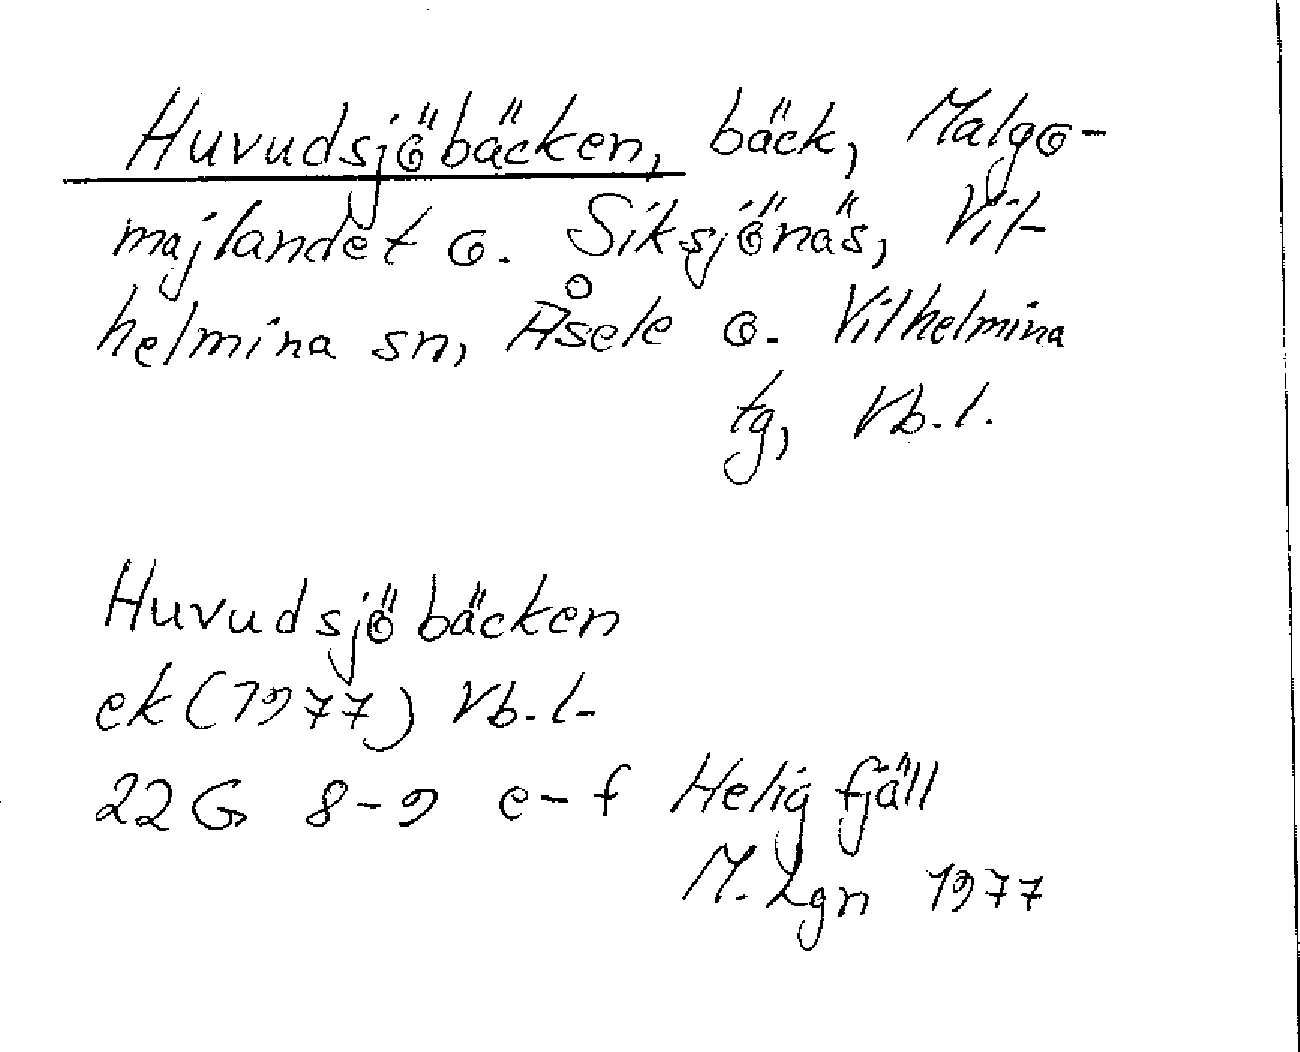 Huvudsjöbäcken, bäck, Malgo-
majlandet o. Siksjönäs, Vil-
helmina sn, Åsele o. Vilhelmina
tg, Vb. l.
Huvudsjöbäcken
ek (1977) Vb. l.
22 G 8-9 e-f Heligfjäll
M. Lgn 1977